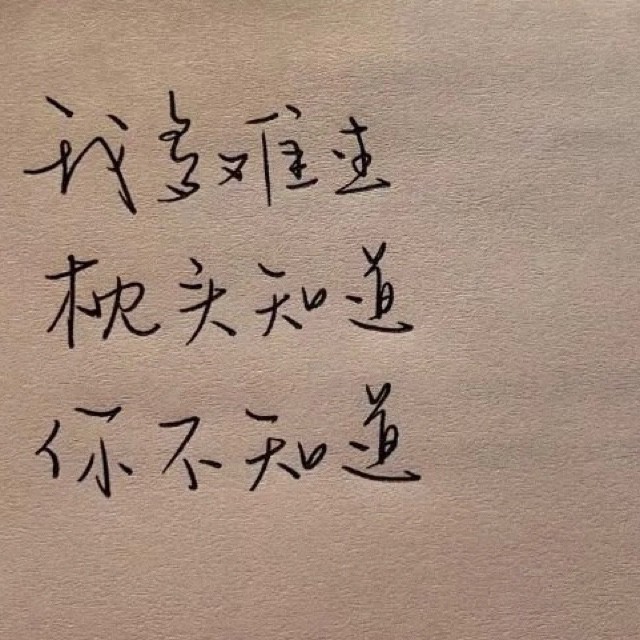 我多难过
枕头知道
你不知道